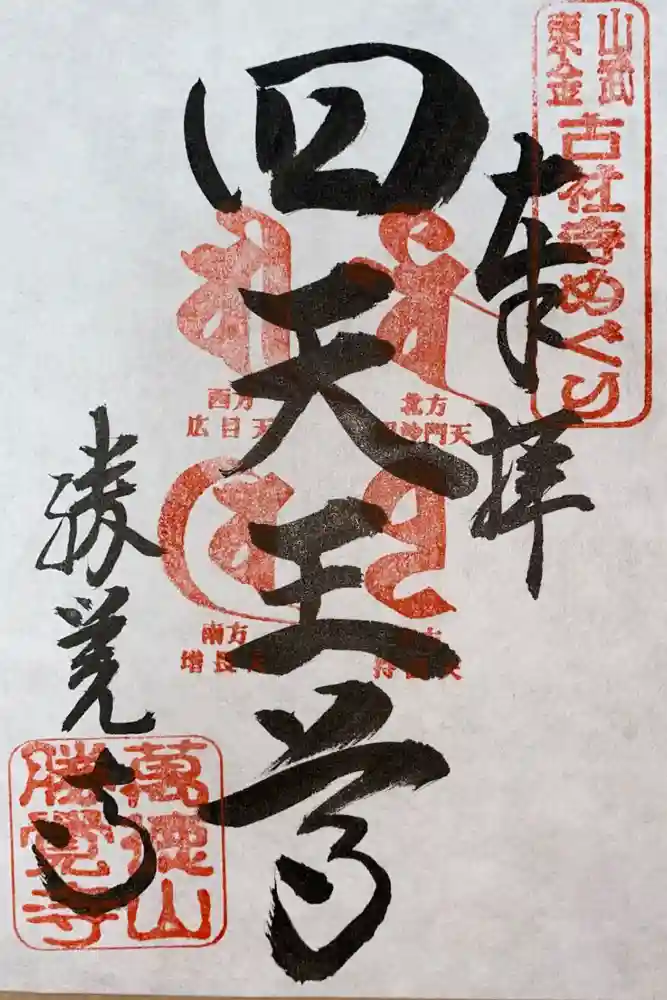 山武
東金
古社寺めぐり
奉拝
四天王尊
西方
広目天
北方
沙門天
南方
増長天
持国天
勝覚寺
萬德山
勝覺寺